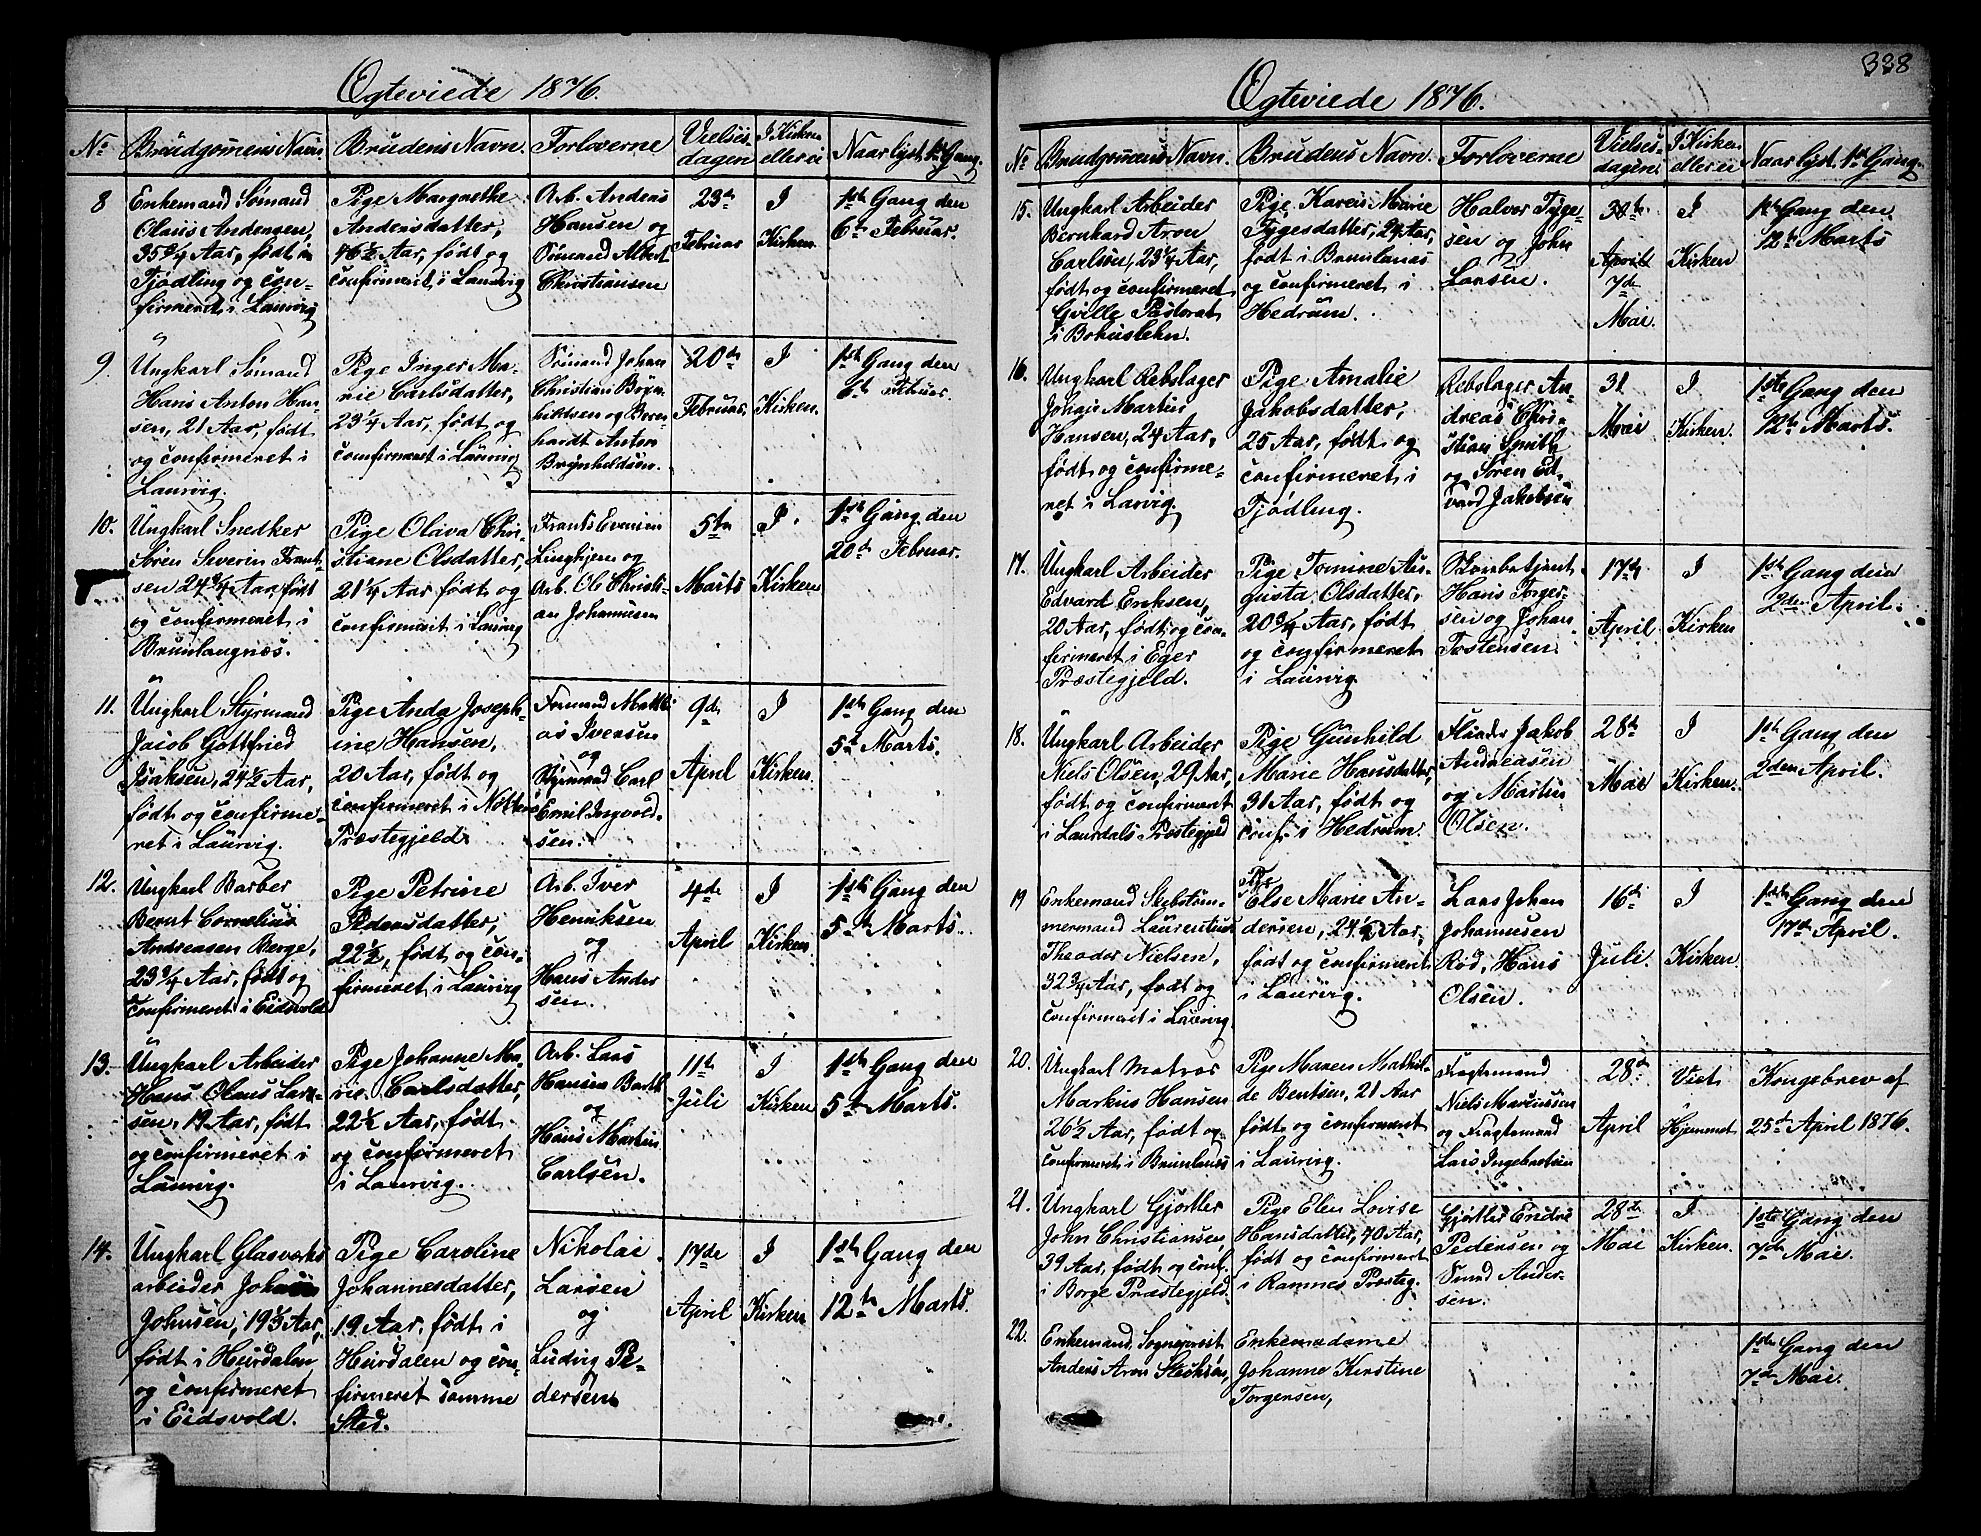 338
Ogteviede 1876.
No
Brudgomens Navn.
Brudens Navn.
Forloverne
Vielses-
dagen
I Kirken
eller ei
Naar lyst 1ste Gang.
8
Enkemand Sømand
Olaus Andersen,
35 3/4 Aar, født i
Tjødling og con-
firmeret i Laurvig
Pige Margrethe
Andersdatter,
46 1/2 Aar, født og
confirmeret i Laurvig
Arb. Anders
Hansen og
Sømand Albert
Christiansen
23de
Februar
I
Kirken
1ste Gang den
6te Februar.
9.
Ungkarl Sømand
Hans Anton Han-
sen, 21 Aar, født
og confirmeret i
Laurvig.
Pige Inger Ma-
rie Carlsdatter,
23 1/4 Aar, født og
confirmeret i Laurvig
Sømand Johan
Christian Bryn-
hildsen og Bern-
hardt Anton
Brynhildsen.
20de
Februar.
I
Kirken.
1ste Gang den
6te Februar.
10.
Ungkarl Snedker
Søren Severin Frant-
sen 24 3/4 Aar, født
og confirmeret i
Brunlangnæs.
Pige Olava Chri-
stiane Olsdatter,
21 1/4 Aar født og
confirmeret i Laurvig
Frants Evensen
Linghjem og
Arb. Ole Christi-
an Johannesen
5te
Marts
I
Kirken
1ste Gang den
20de Februar.
11.
Ungkarl Styrmand
Jacob Gottfried
Isaksen, 24 1/2 Aar,
født og confirme-
ret i Laurvig.
Pige Anda Joseph-
ine Hansen,
20 Aar, født og
confirmeret i Nøtterø
Præstegjeld
Formand Mathi-
as Iversen
og
Styrmand Carl
Emil Ingvold-
sen.
9de
April
I
Kirken.
1ste Gang den
5te Marts.
12.
Ungkarl Barber
Bernt Cornelius
Andreasen Berge,
23 3/4 Aar, født og
confirmeret i Eidsvold
Pige Petrine
Pedersdatter,
22 1/2, født og con-
firmeret i Laurvig
Arb. Iver
Henriksen
og
Hans Ander
sen.
4de
April
I
Kirken.
1ste Gang den
5te Marts.
13.
Ungkarl Arbeider
Hans Olaus Lar-
sen, 19 Aar, født
og confirmeret i
Laurvig.
Pige Johanne Ma-
rie Carlsdatter,
22 1/2 Aar, født
og confirmeret
i Laurvig.
Arb. Lars
Hansen Barth
og
Hans Martin
Carlsen.
11te
Juli
I
Kirken
1ste Gang den
5te Marts.
14.
Ungkarl Glasværks
arbeider Johan
Johnsen, 19 1/2 Aar,
født i Heurdalen
og confirmeret
i Eidsvold.
Pige Caroline
Johannesdatter,
19 Aar, født i
Heurdalen og con-
firmeret samme
Sted.
Nikolai
Larsen
og
Ludvig Pe-
dersen
17de
April
I
Kirken
1ste Gang den
12te Marts.
Ogteviede 1876.
No
Brudgomens Navn.
Brudens Navn
Forloverne
Vielses-
dagen
I Kirken
eller ei
Naar lyst 1ste Gang.
15.
Ungkarl Arbeider
Bernhard Aron
Carlsen, 23 1/4 Aar,
født og confirmeret
Qville Pastorat
i Bohuslehn.
Pige Karen Marie
Tygesdatter, 24 Aar,
født i Brunlanæs
og confirmeret i
Hedrum.
Halvor Tyge-
sen og John
Larsen.
30te
April
7de
Mai.
I
Kirken
1ste Gang den
12te Marts
16.
Ungkarl Rebslager
Johan Martin
Hansen, 24 Aar,
født og confirme-
ret i Larvig.
Pige Amalie
Jakobsdatter,
25 Aar, født og
confirmeret i
Tjødling.
Rebslager An-
dreas Chri-
stian Smith
og Søren Ed-
vard Jakobsen
31
Mai
I
Kirken.
1ste Gang den
12te Marts.
17.
Ungkarl Arbeider
Edvard Eriksen,
20 Aar, født og con-
firmeret i Eger
Præstegjeld.
Pige Tomine Au-
gusta Olsdatter,
20 3/4 Aar, født
og confirmeret
i Laurvig
Hans Torger-
sen og Johan
Tostensen
17de
April
I
Kirken
1ste Gang den
2den April.
18.
Ungkarl Arbeider
Niels Olsen, 29 Aar,
født og confirmeret
i Laurdals Præstegjeld
Pige Gunhild
Marie Hansdatter,
31 Aar, født og
conf. i Hedrum.
Jakob
Andreasen
og Martin
Olsen.
28de
Mai
I
Kirken.
1ste Gang den
2den April.
19
Enkemand Skibstøm-
mermand Laurentius
Theodor Nielsen,
32 3/4 Aar, født og
confirmeret i Laurvig
Pige
Else Marie An-
dersen, 24 1/2 Aar,
født og confirmeret
i Laurvig.
Lars Johan
Johannesen
Rød, Hans
Olsen.
16de
Juli.
I
Kirken.
1ste Gang den
17de April.
20.
Ungkarl Matros
Markus Hansen
26 1/2 Aar, født og
confirmeret i Brunlanæs
Pige Maren Mathil-
de Bentsen, 21 Aar
født og confirmeret
i Laurvig.
Fragtemand
Niels Marcussen
og Fragtemand
Lars Ingebretsen
28de
April
Viet
i
Hjemmet
Kongebrev af
25de April 1876.
21.
Ungkarl Gjørtler
John Christiansen,
39 Aar, født og conf.
i Borge Præstegjeld.
Pige Elen Lovise
Hansdatter, 40 Aar,
født og confirmeret
i Ramnes Præsteg.
Gjørtler Endre
Pedersen og
Smed Ander-
sen.
28de
Mai
I
Kirken.
1ste Gang den
7de Mai.
22.
Enkemand, Sogneprest
Anders Aron
Enkemadame
Johanne Kirstine
Torgersen,
1ste Gang den
7de Mai.